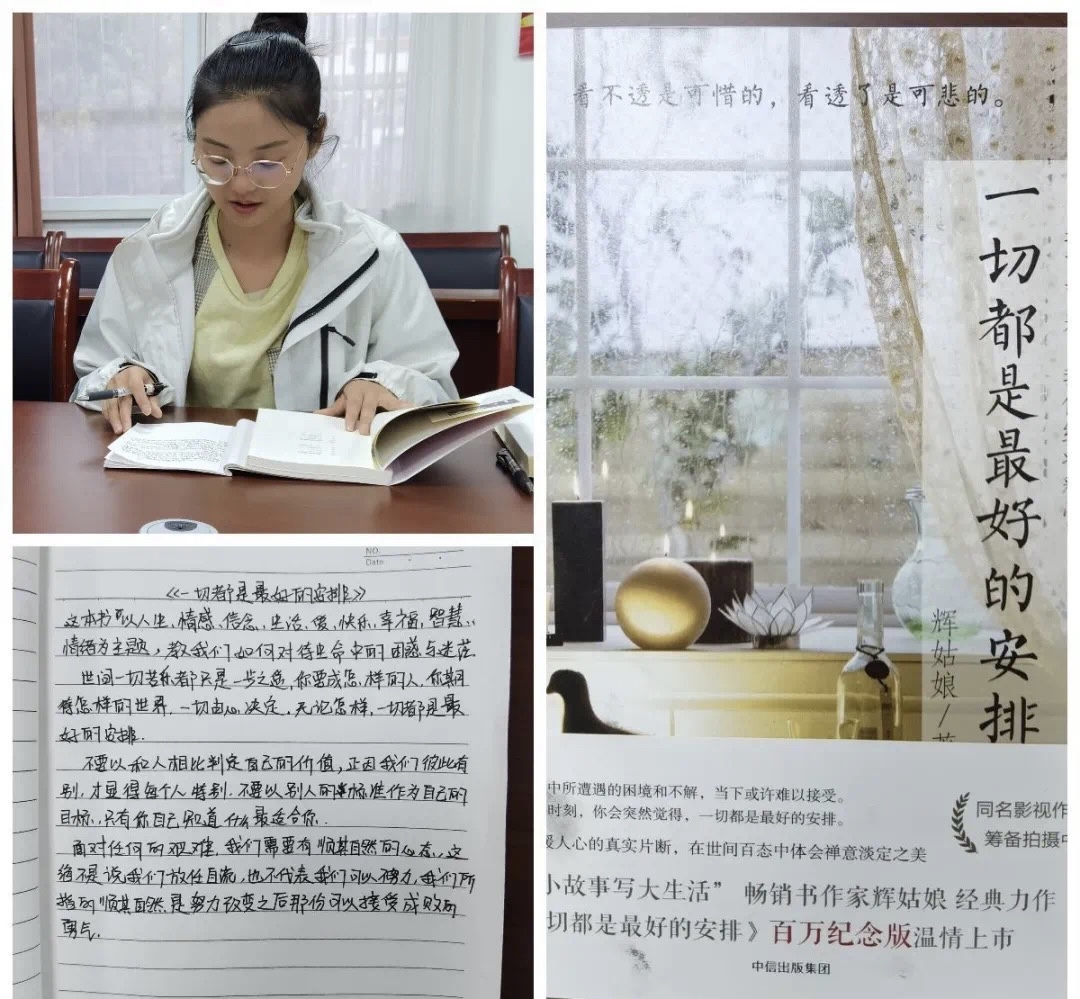 NO.
Date
《一切都是最好的安排》
这本书以人生、情感、信念、生活、爱、快乐、幸福、智慧、
情绪为主题,教我们如何对待生命中的困惑与迷茫
世间一切苦乐都只是一步之遥,你要成怎样的人,你期
待怎样的世界,一切由心决定。无论怎样,一切都是最
好的安排。
不要以和人相比判定自己的价值,正因我们彼此有
别,才显得每个人特别。不要以别人的标准作为自己的
目标,只有你自己知道什么最适合你。
面对任何的艰难,我们需要有顺其自然的心态,这
绝不是说我们放任自流,也不代表我们可以不努力,我们所
指的顺其自然是努力改变之后那份可以接受成败的
勇气。
看不透是可惜的,看透了是可悲的。
一切都是最好的安排
辉姑娘/著
中所遭遇的困境和不解,当下或许难以接受。
时刻,你会突然觉得,一切都是最好的安排。
暖人心的真实片断,在世间百态中体会禅意淡定之美
同名影视作
筹备拍摄中
小故事写大生活” 畅销书作家辉姑娘 经典力作
切都是最好的安排》百万纪念版温情上市
中信出版集团